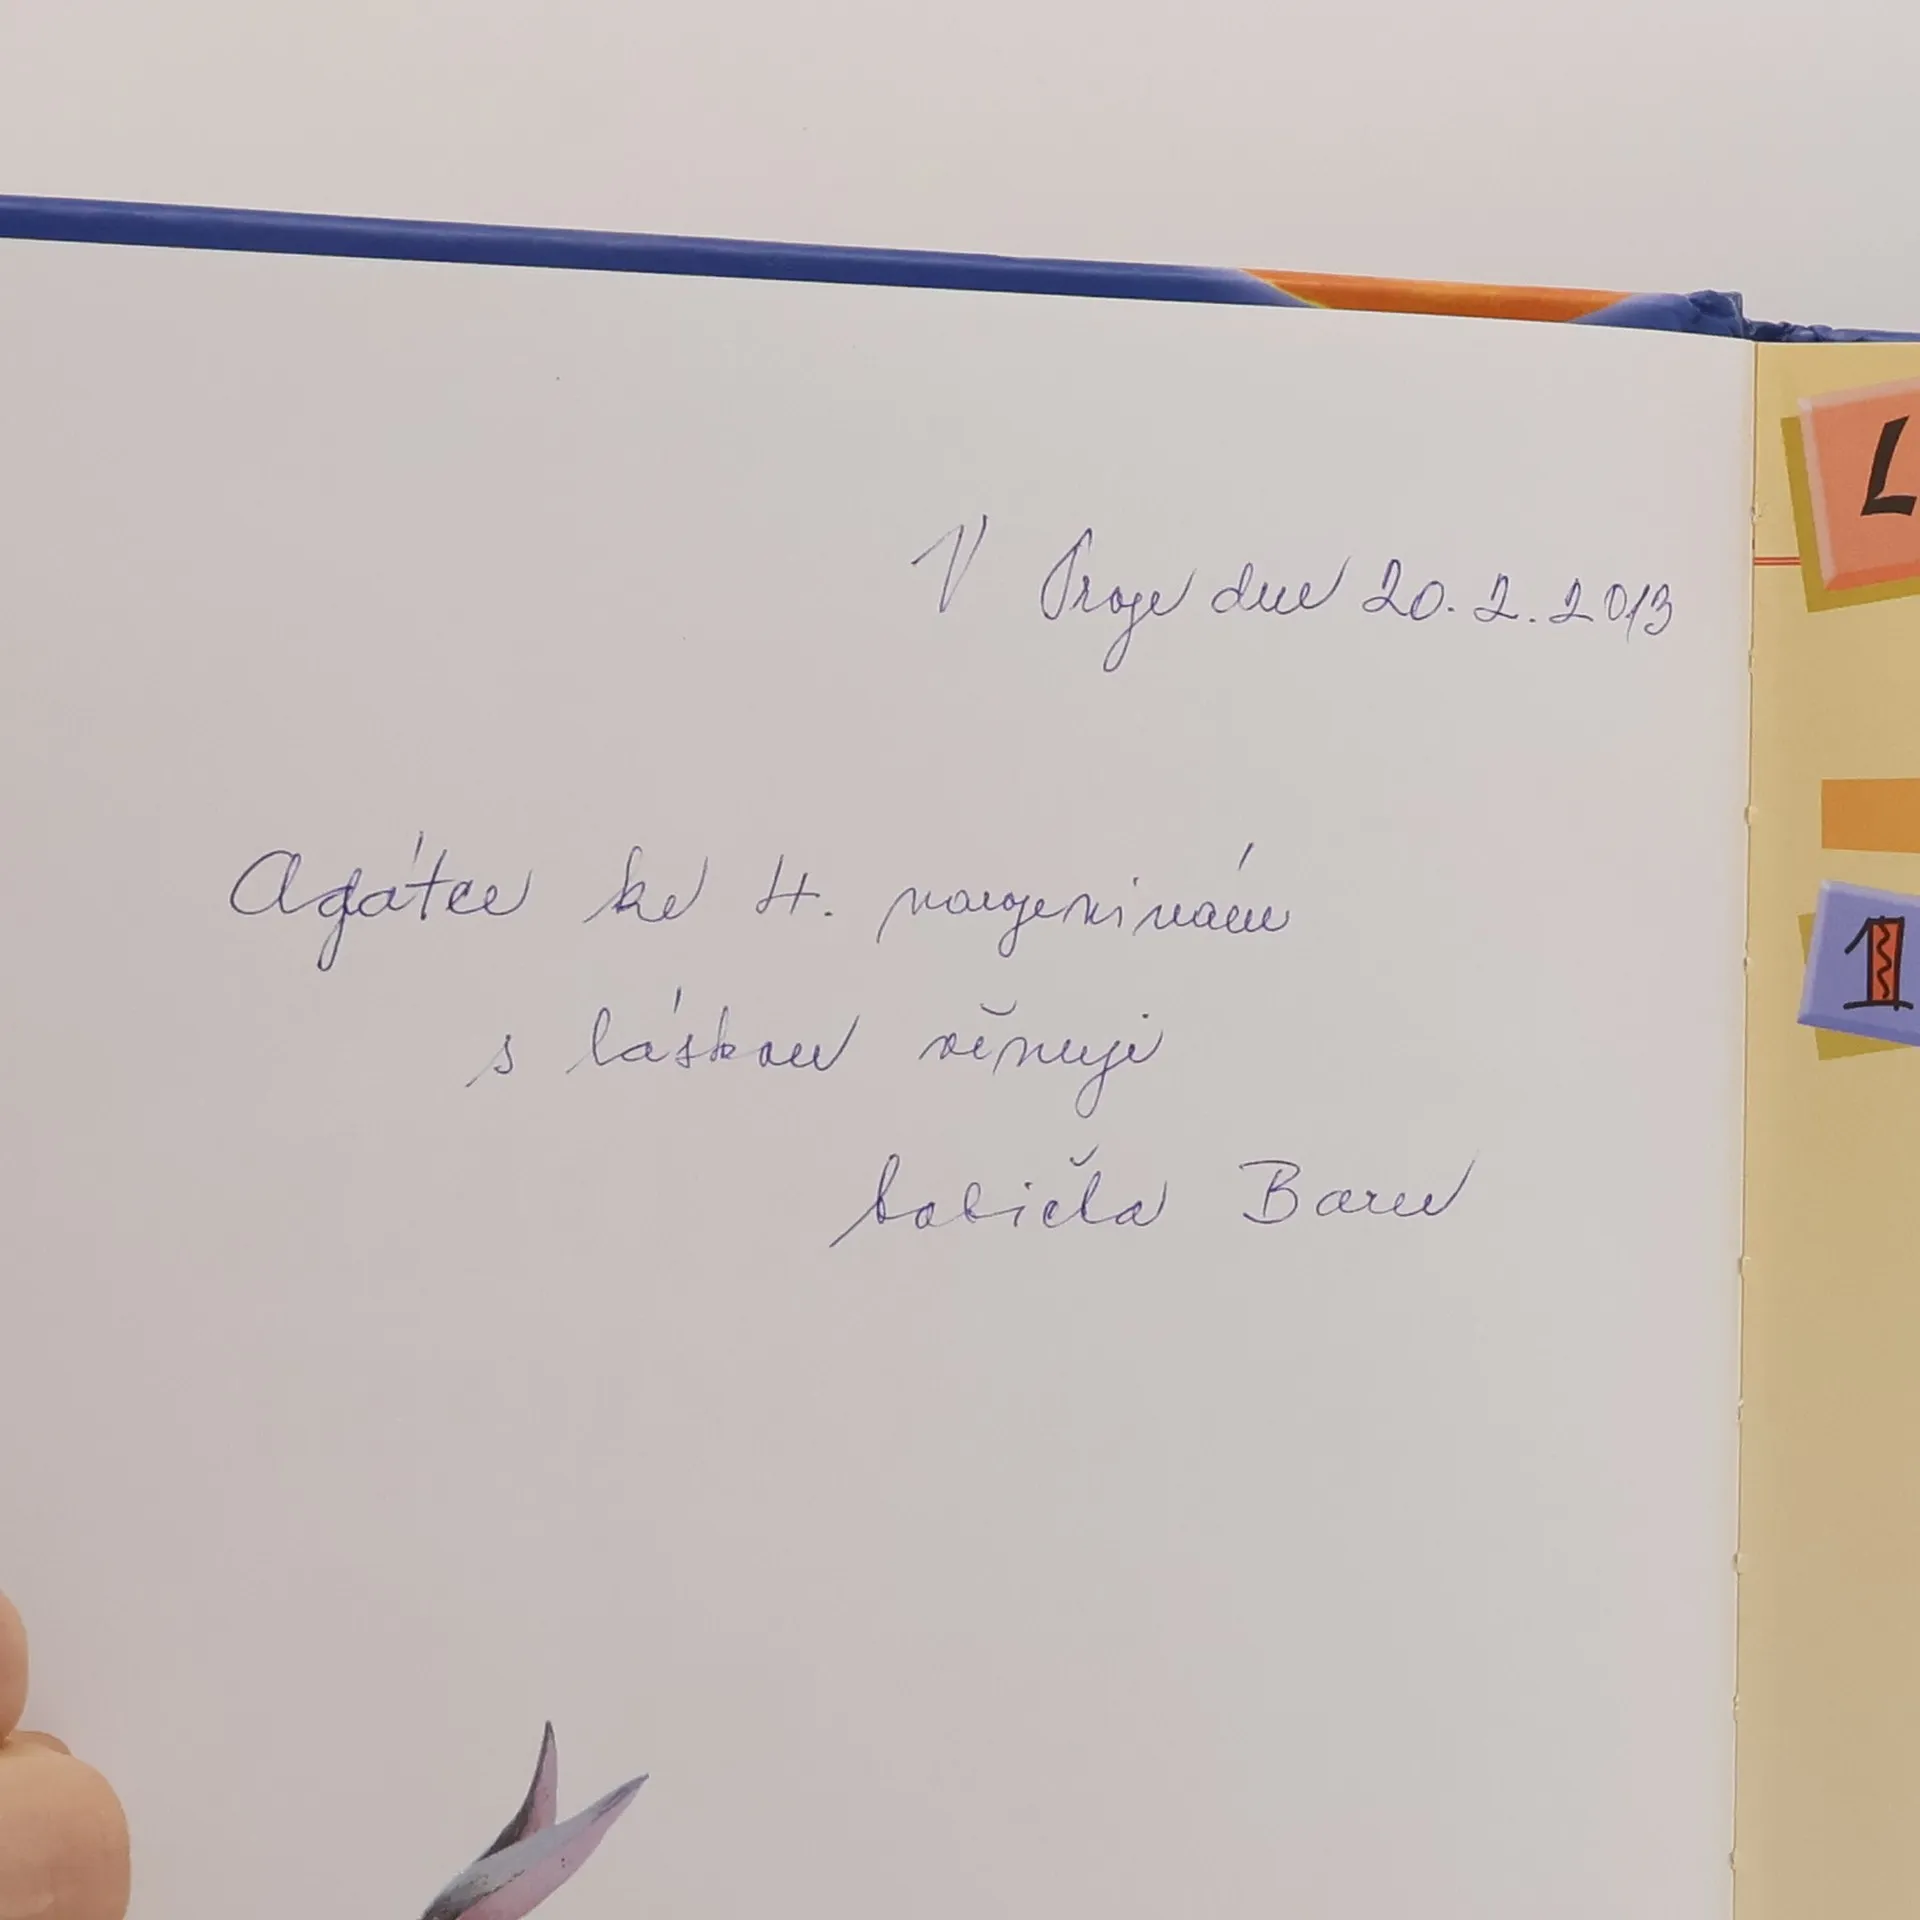 V Praze dne 20. 2. 2013
L
Agátce ke 4. narozeninám
1
s láskou věnuje
babička Baru